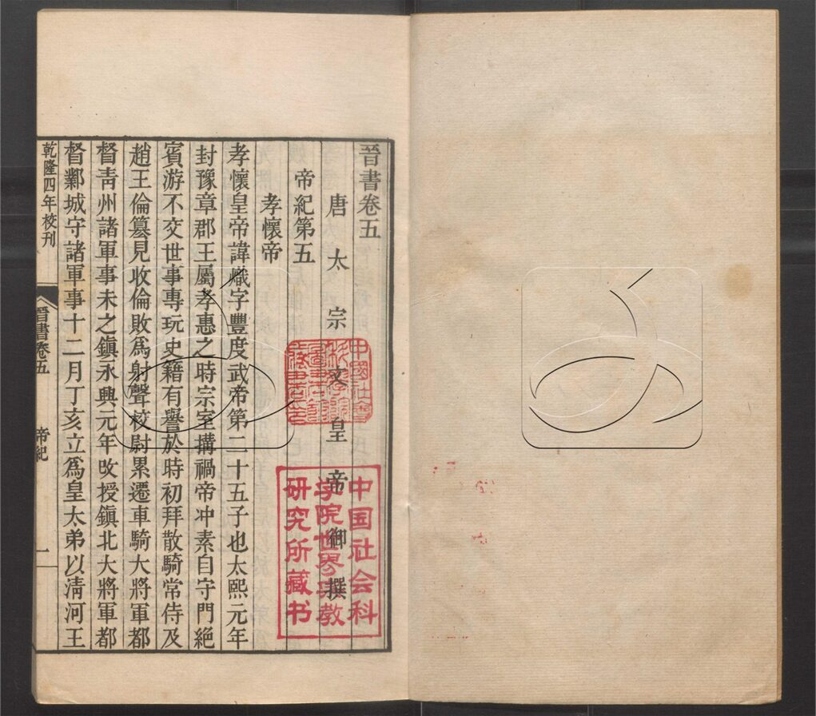 晉書卷五
唐太宗文皇帝御撰
帝紀第五
孝懷帝
孝懷皇帝諱熾字豐度武帝第二十五子也太熙元年
封豫章郡王屬孝惠之時宗室搆禍帝冲素自守門絶
賓游不交世事專玩史籍有譽於時初拜散騎常侍及
趙王倫簒見收倫敗爲射聲校尉累遷車騎大將軍都
督青州諸軍事未之鎮永興元年攺授鎮北大將軍都
督鄴城守諸軍事十二月丁亥立爲皇太弟以清河王
乾隆四年校刊
晉書卷五
帝紀
一
中国社会科
学院世界宗教
研究所藏书
中國社會
科學院